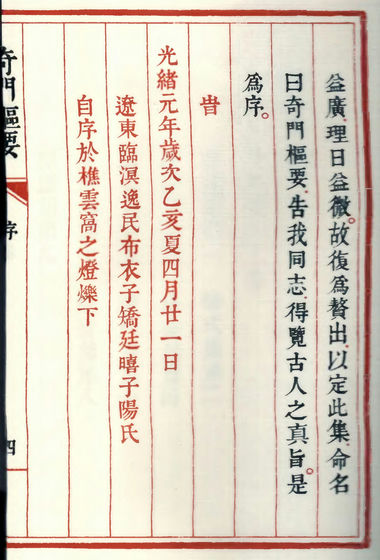 益廣。理日益微。故復爲贅出。以定此集。命名
曰奇門樞要。告我同志。得覽古人之真旨。是
爲序。
旹
光緒元年歲次乙亥夏四月廿一日
遼東臨溟逸民布衣子矯廷曦子陽氏
自序於樵雲窩之燈爍下
奇門樞要
序
四